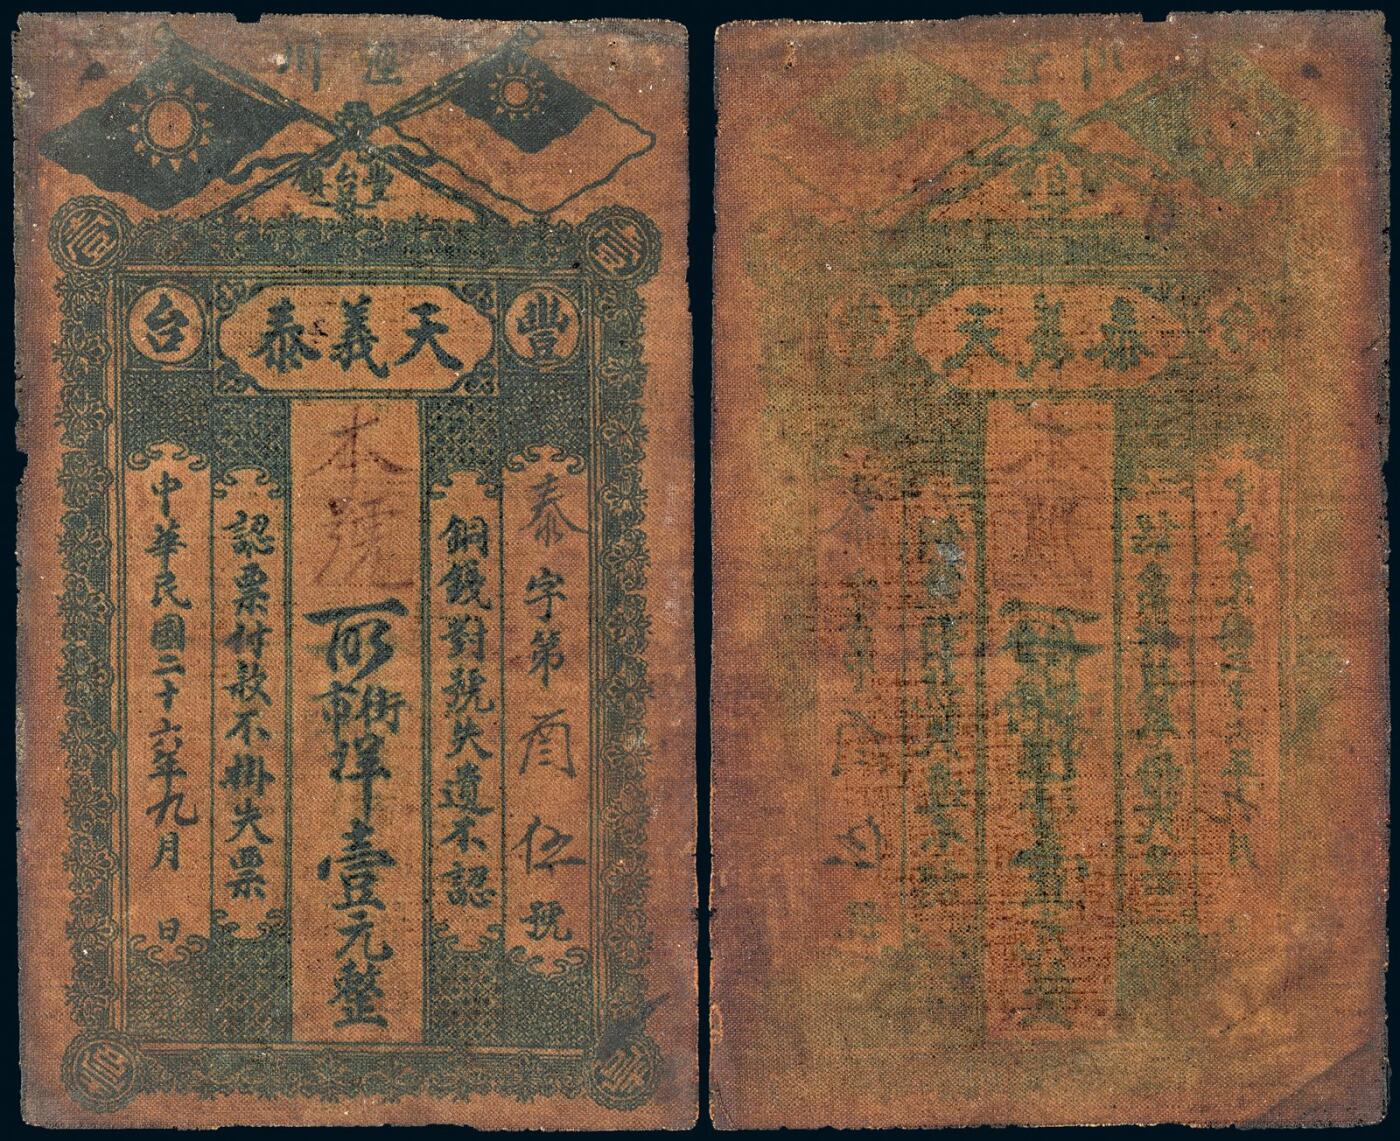 涇川
豐台鎮
壹 壹
豐 天義泰 台
泰字第酉伍號
銅錢對號失遺不認
本號 街市洋壹元整
認票付款不掛失票
中華民國二十六年九月 日
壹 壹